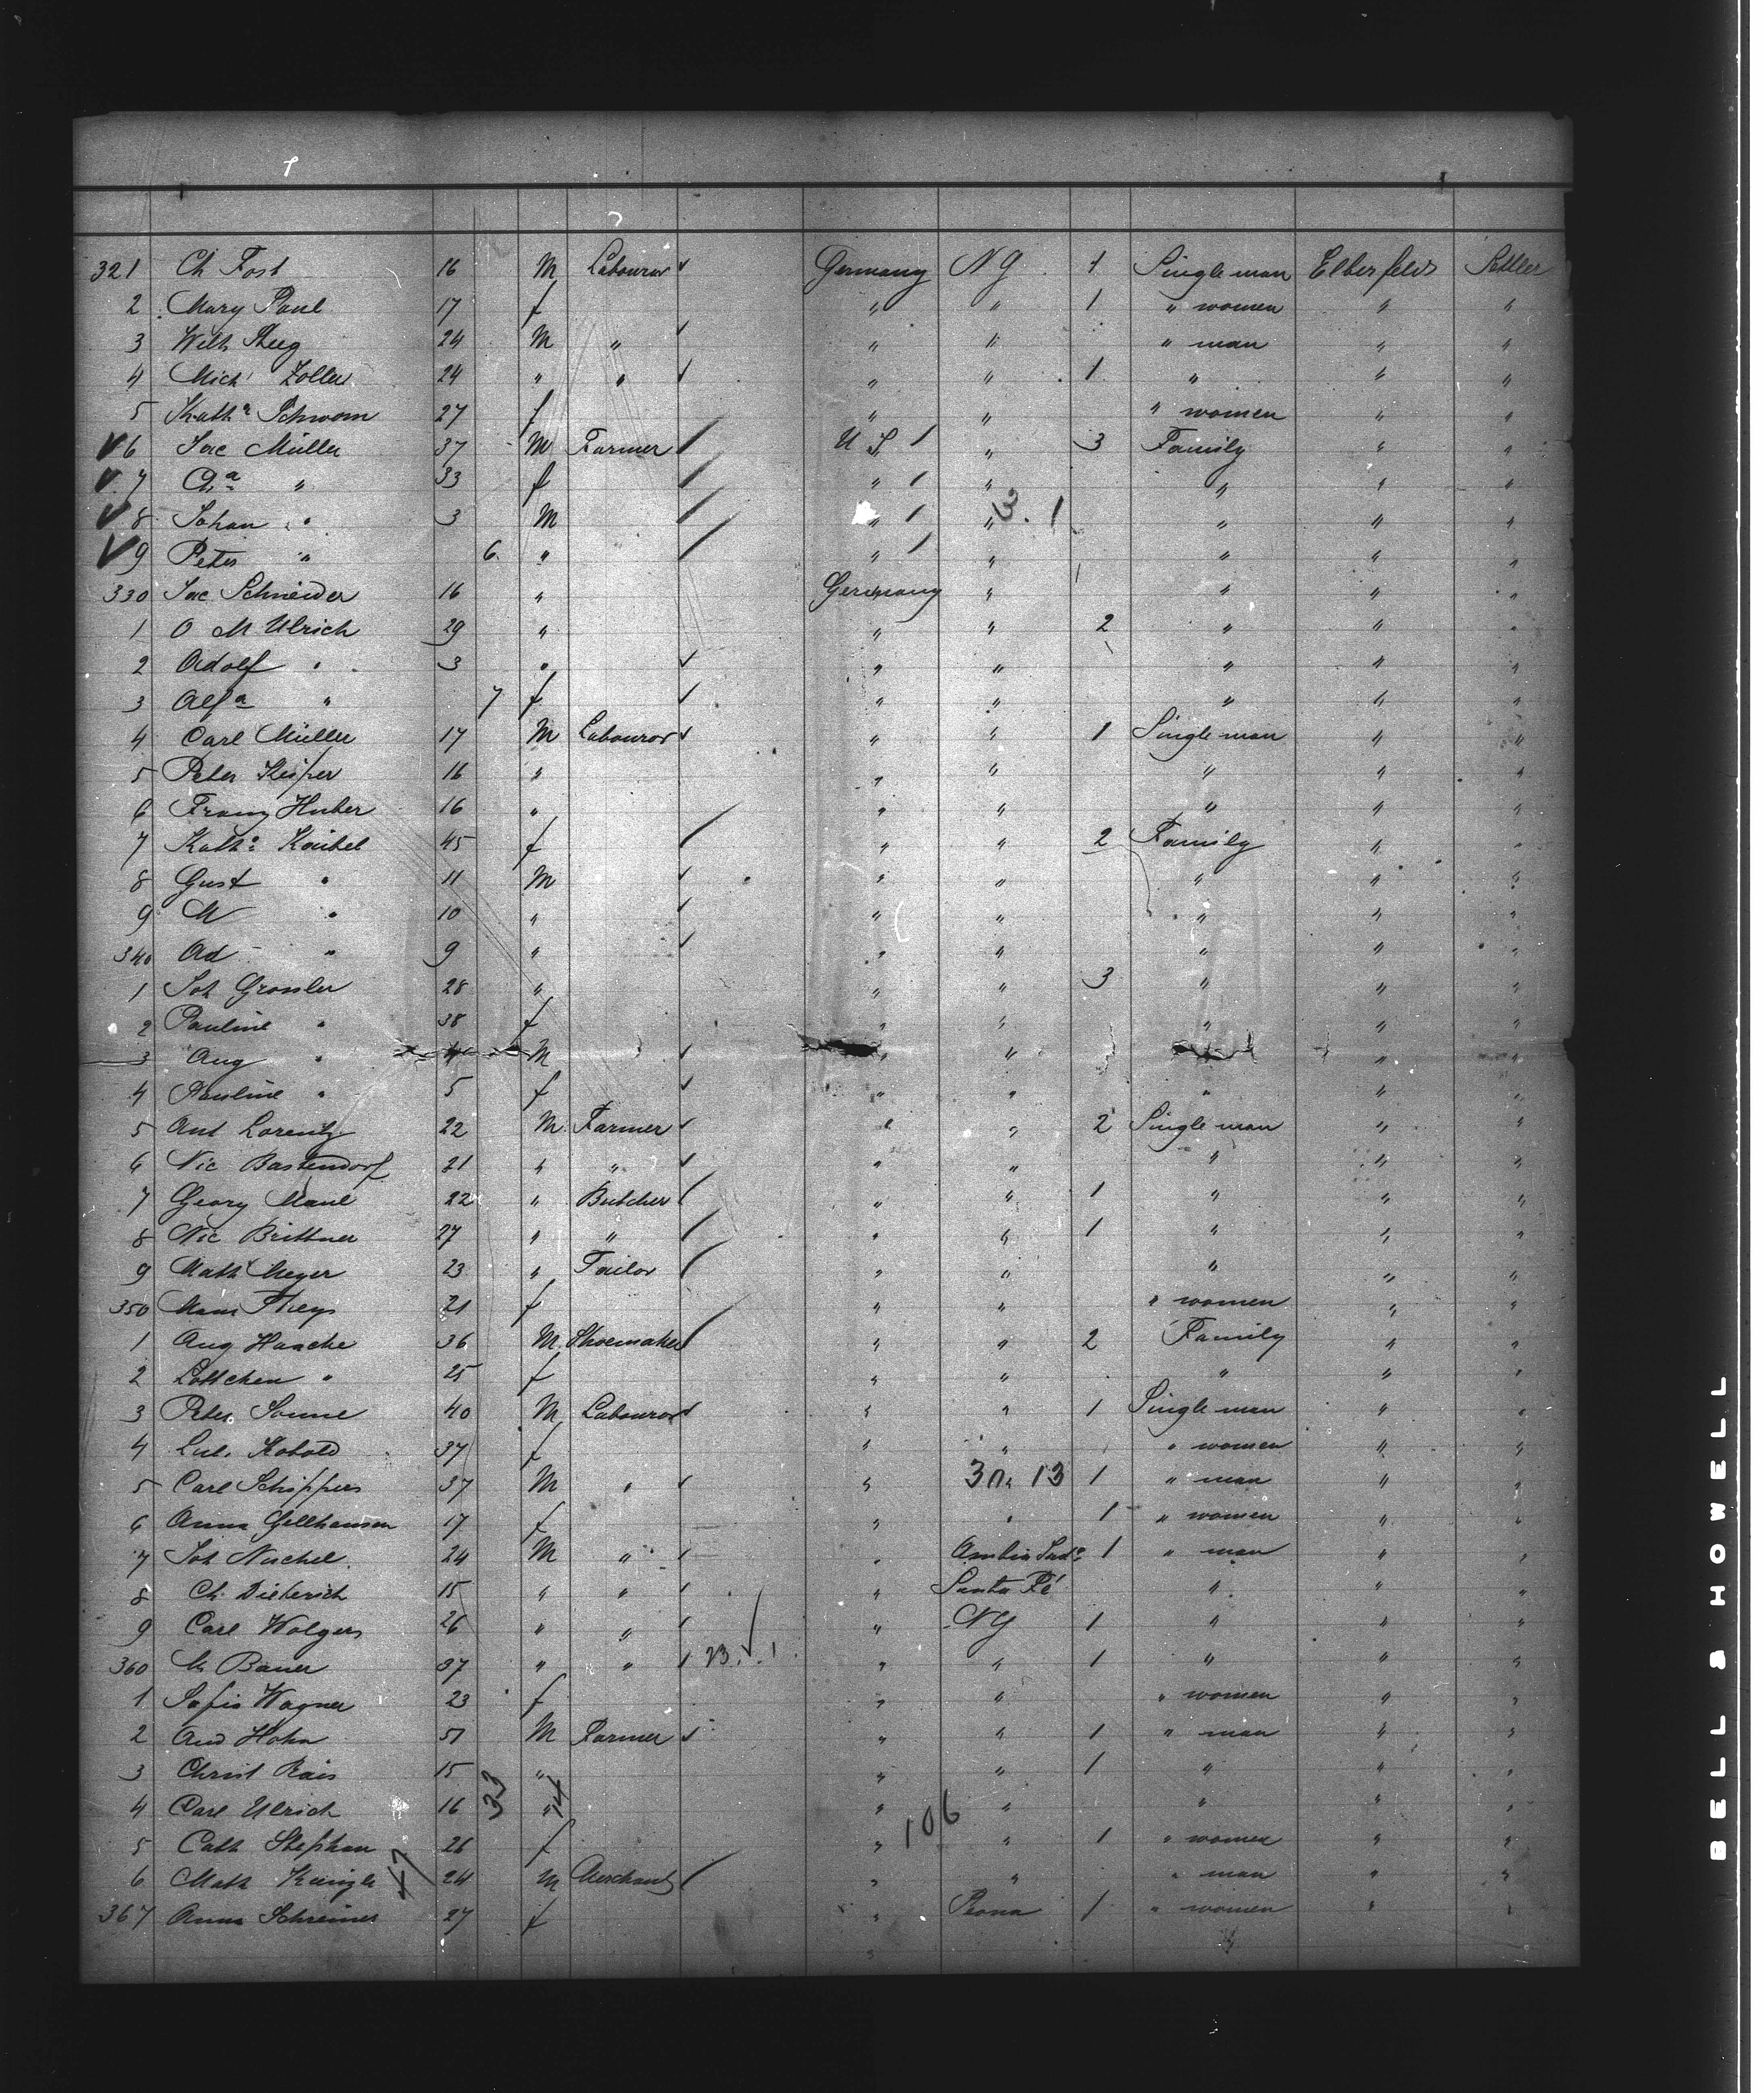 321 Ch Fost 16 M Labourer Germany NY 1 Single man Elberfeld Settler
2 Mary Paul 17 f " " 1 " women " "
3 Wilh 24 M " " " " man " "
4 Mich Zoller 24 " " " " 1 " " "
5 Kath 27 f " " " women " "
6 Jac Müller 37 M Farmer U S 1 " 3 Family " "
7 Cha " 33 f " 1 " " " "
8 Johan " 3 M " 1 " 3. 1 " " "
9 Peter " 6 " " 1 " " " "
330 Jac Schneider 16 " Germany " " " "
1 O M Ulrich 29 " " " 2 " " "
2 Adolf " 3 " " " " " "
3 Alfa " 7 f " " " " "
4 Carl Müller 17 M Labourer " " 1 Single man " "
5 Peter 16 " " " " " "
6 Franz Huber 16 " " " " " "
7 Kath Kaibel 45 f " " 2 Family " "
8 Gust " 11 M " " " " "
9 M " 10 " " " " " "
340 Ad " 9 " " " " " "
1 Joh Grossler 28 " " " 3 " " "
2 Pauline " 38 f " " " " "
3 Aug " M " " " "
4 Pauline " 5 f " " " " "
5 Ant Lorentz 22 M Farmer " " 2 Single man " "
6 Nic Bastendorf 21 " " " " " " "
7 Georg 22 " Butcher " " 1 " " "
8 Nic Brittner 27 " " " " 1 " " "
9 Math Meyer 23 " Tailor " " " " "
350 21 f " " " women " "
1 Aug Haacke 36 M Shoemaker " " 2 Family " "
2 Lottchen " 25 f " " " " "
3 Peter Sonne 40 M Labourer " " 1 Single man " "
4 Kobold 37 f " " " women " "
5 Carl Schippers 37 M " " 13 1 " man " "
6 Anna Gellhausen 17 f " " 1 " women " "
7 Joh Nuchel 24 M " " 1 " man " "
8 Ch. Dieterich 15 " " " Santa Fé " " "
9 Carl Wolgers 26 " " " NY 1 " " "
360 M Bauer 37 " " " " 1 " " "
1 Sofia Wagner 23 f " " " women " "
2 And Hohn 51 M Farmer " " 1 " man " "
3 Christ Rais 15 " " " 1 " " "
4 Carl Ulrich 16 33 " 14 " " " " "
5 Cath Stephan 26 f " 106 " 1 " women " "
6 Math 47 24 M Merchant " " " man " "
367 Anna Schreiner 27 f " 1 " women " "
BELL & HOWELL